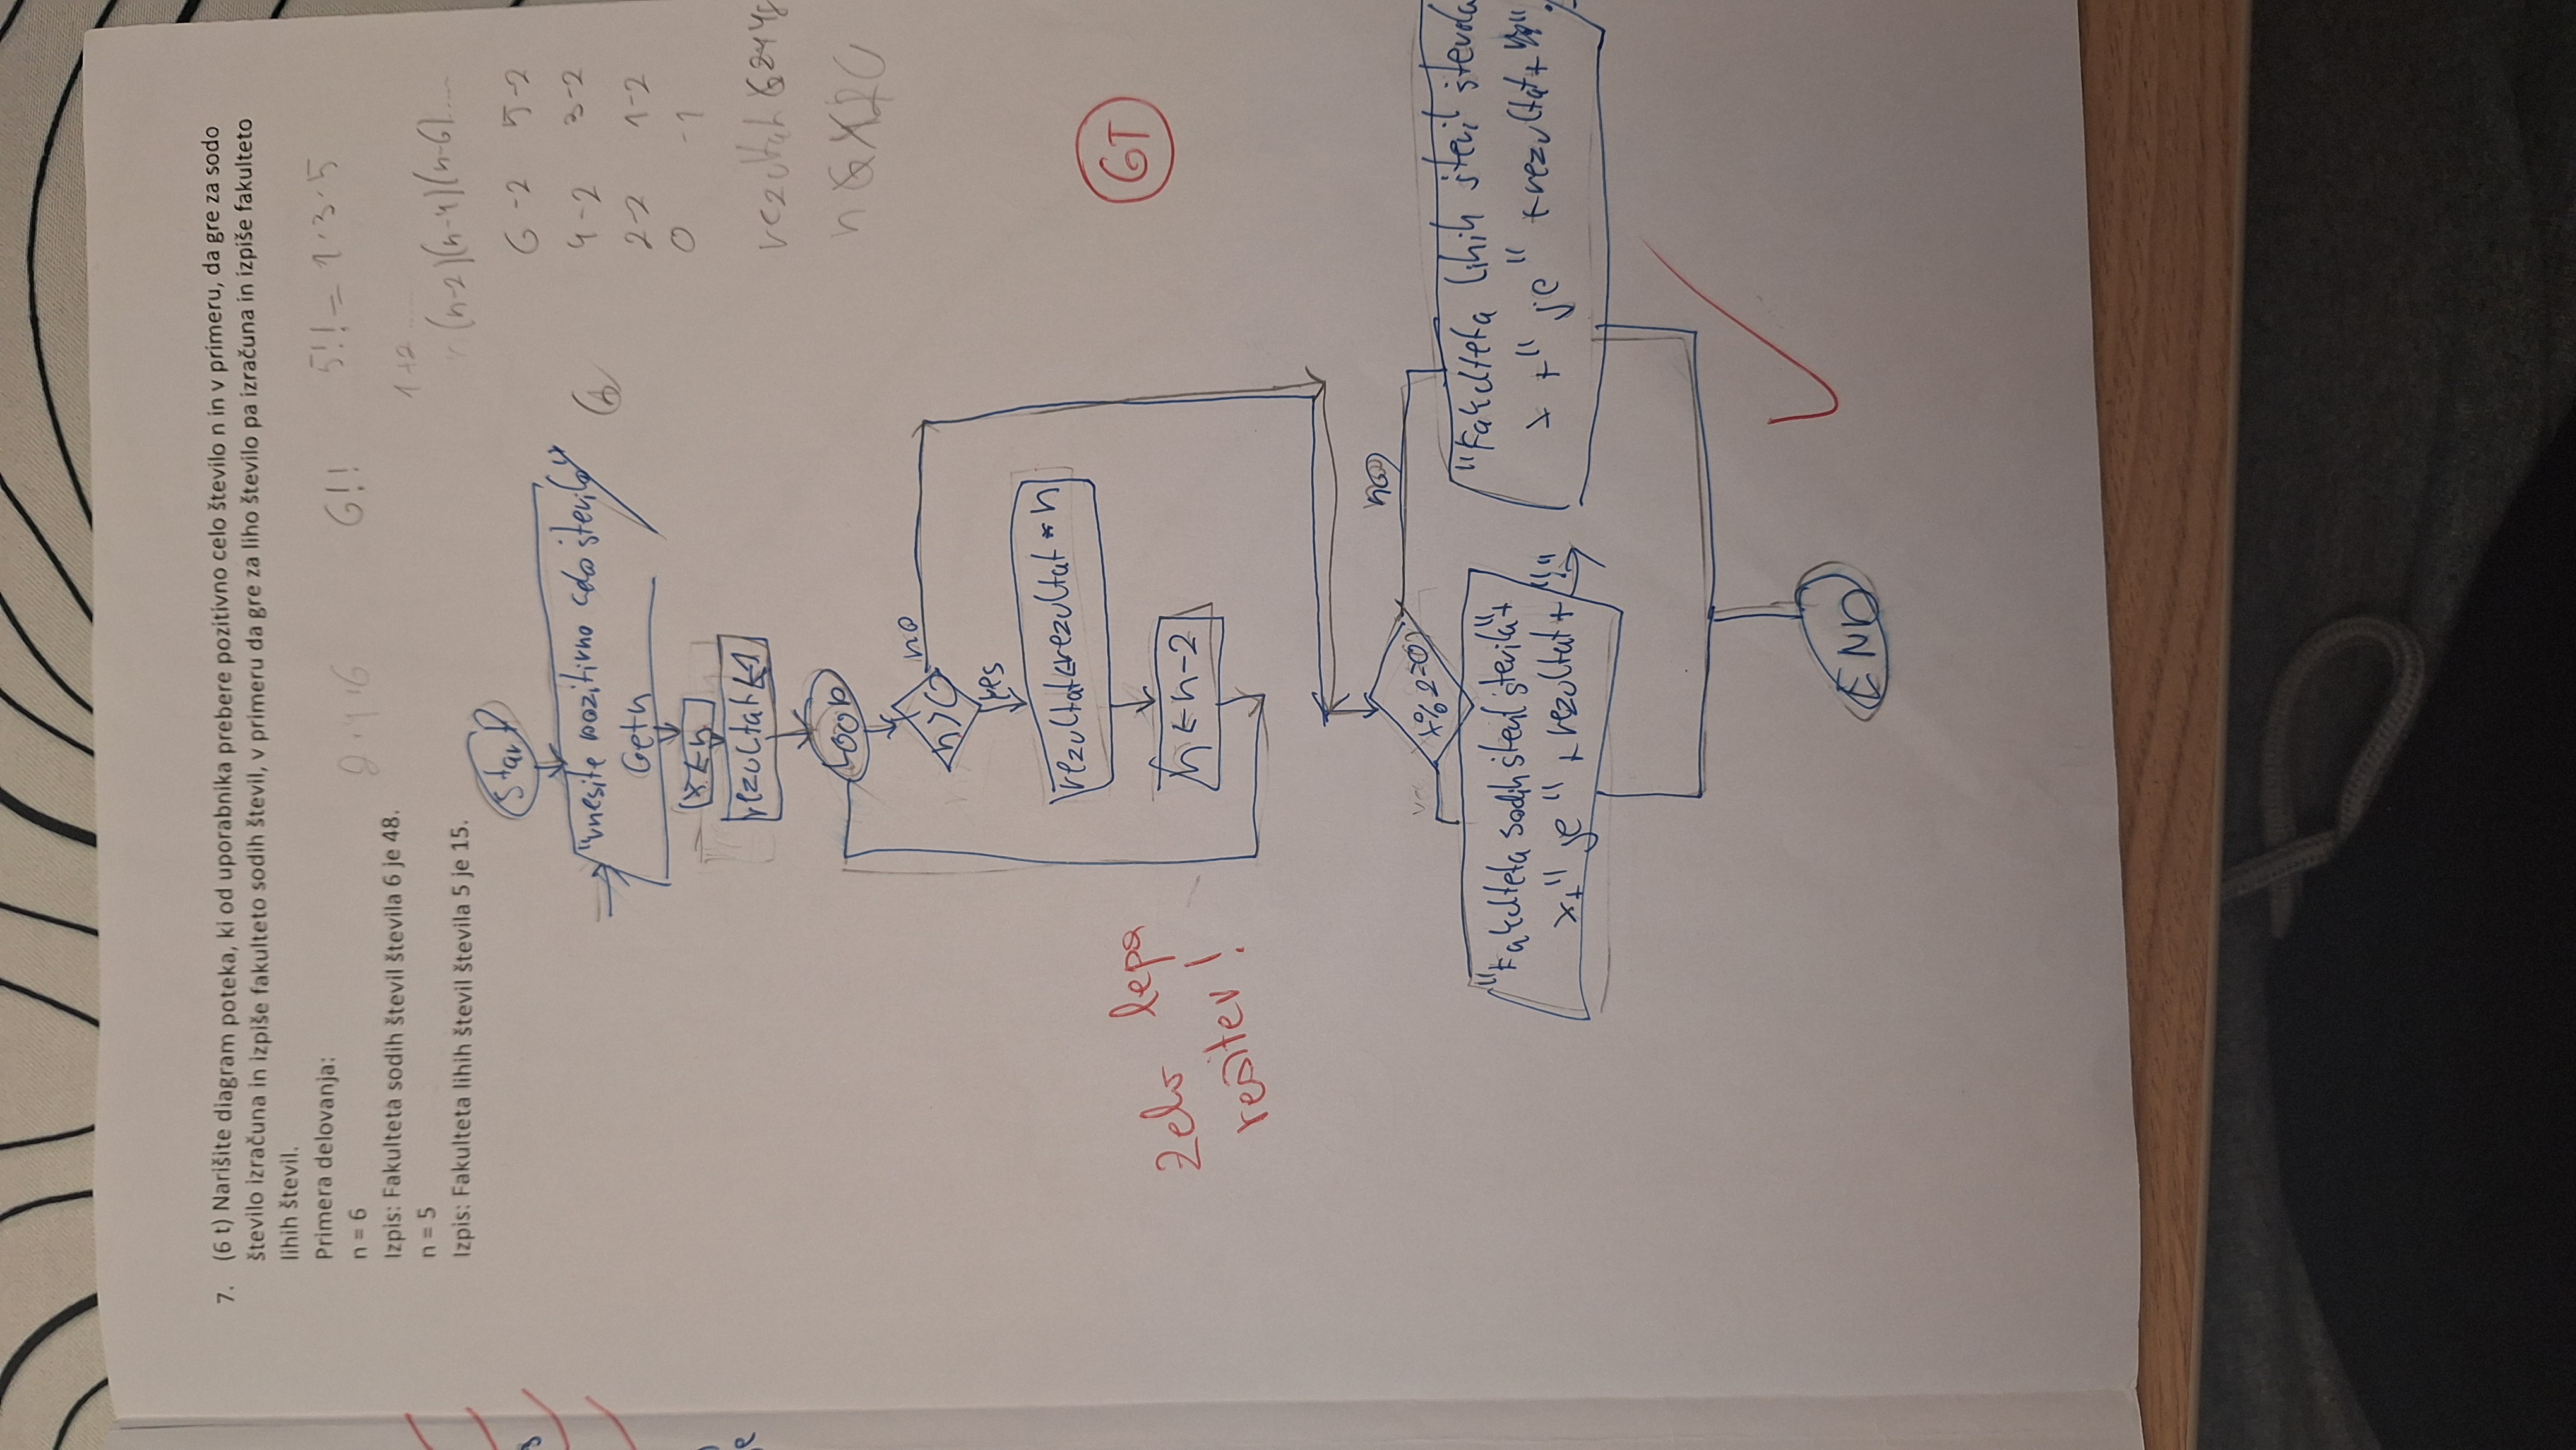 7. (6 t) Narišite diagram poteka, ki od uporabnika prebere pozitivno celo število n in v primeru, da gre za sodo
število izračuna in izpiše fakulteto sodih števil, v primeru da gre za liho število pa izračuna in izpiše fakulteto
lihih števil.
Primera delovanja:
n = 6
Izpis: Fakulteta sodih števil števila 6 je 48.
n = 5
Izpis: Fakulteta lihih števil števila 5 je 15.
2·4·6
6!!
5!! = 1·3·5
1+2 ....
n(n-2)(n-4)(n-6)....
6-2 5-2
4-2 3-2
2-2 1-2
0 -1
rezultat
Start
"vnesite pozitivno celo število"
Get n
x ← n
rezultat ← 1
Loop
n>0
no
yes
rezultat ← rezultat * n
n ← n-2
Zelo lepa
rešitev!
6T
x%2=0
no
"Fakulteta sodih števil števila"+
x+" je "+rezultat+"."
"Fakulteta lihih števil števila
x +" je "+rezultat+"."
END